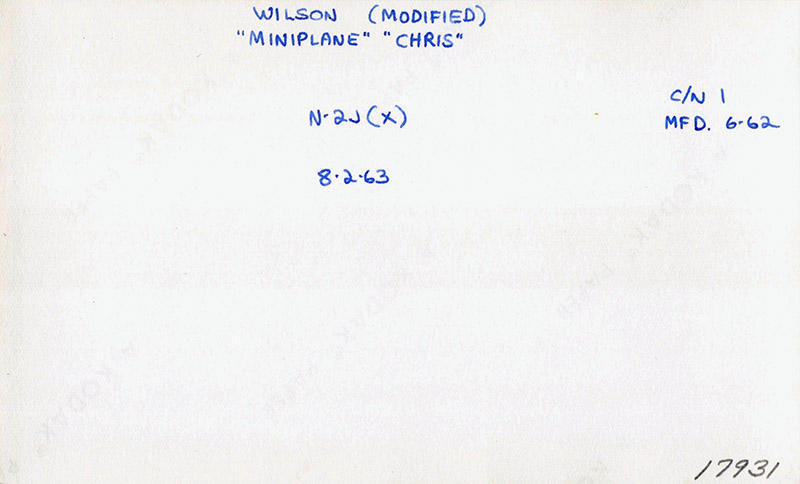 WILSON (MODIFIED)
"MINIPLANE" "CHRIS"
C/N 1
N-2J(X)
MFD. 6-62
8-2-63
17931